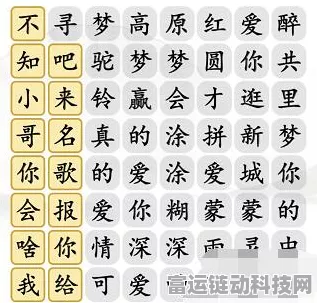 不寻梦高原红爱醉
知吧驼梦梦圆你共
小来铃赢会才逛里
哥名真的涂拼新梦
你歌的爱涂爱城你
会报爱你糊蒙蒙的
啥你情深深雨寻虫
我给可爱
富运链动科技网